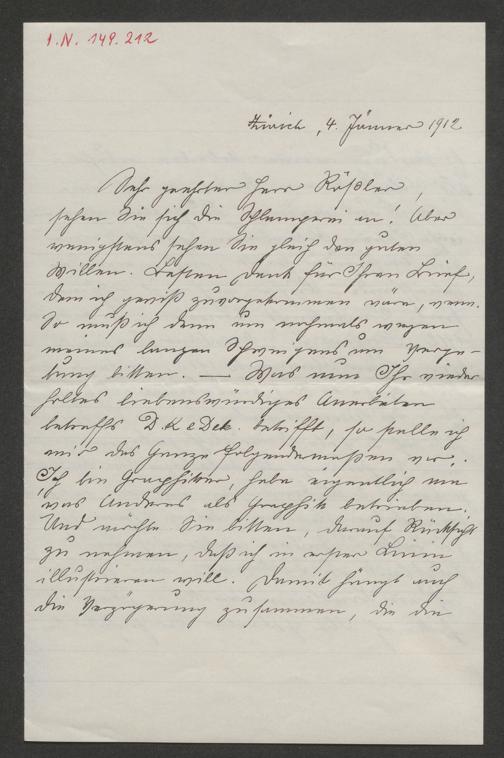 I.N. 149.212
Zürich, 4. Jänner 1912
Sehr geehrter Herr Rößler,
sehen Sie sich die Schlamperei an! Aber
wenigstens sehen Sie gleich den guten
Willen. Besten Dank für Ihren Brief,
dem ich gewiß zuvorgekommen wäre, wenn.
So muß ich denn um nochmals wegen
meines langen Schweigens um Verge-
bung bitten. — Was nun Ihr wieder
holtes liebenswürdiges Anerbieten
betreffs D. K. e Dek. betrifft, so stelle ich
mir das Ganze folgendermaßen vor:
Ich bin Graphiker, habe eigentlich nie
was Anderes als Graphik betrieben.
Und möchte Sie bitten, darauf Rücksicht
zu nehmen, daß ich in erster Linie
illustrieren will. Damit hängt auch
die Verzögerung zusammen, die die